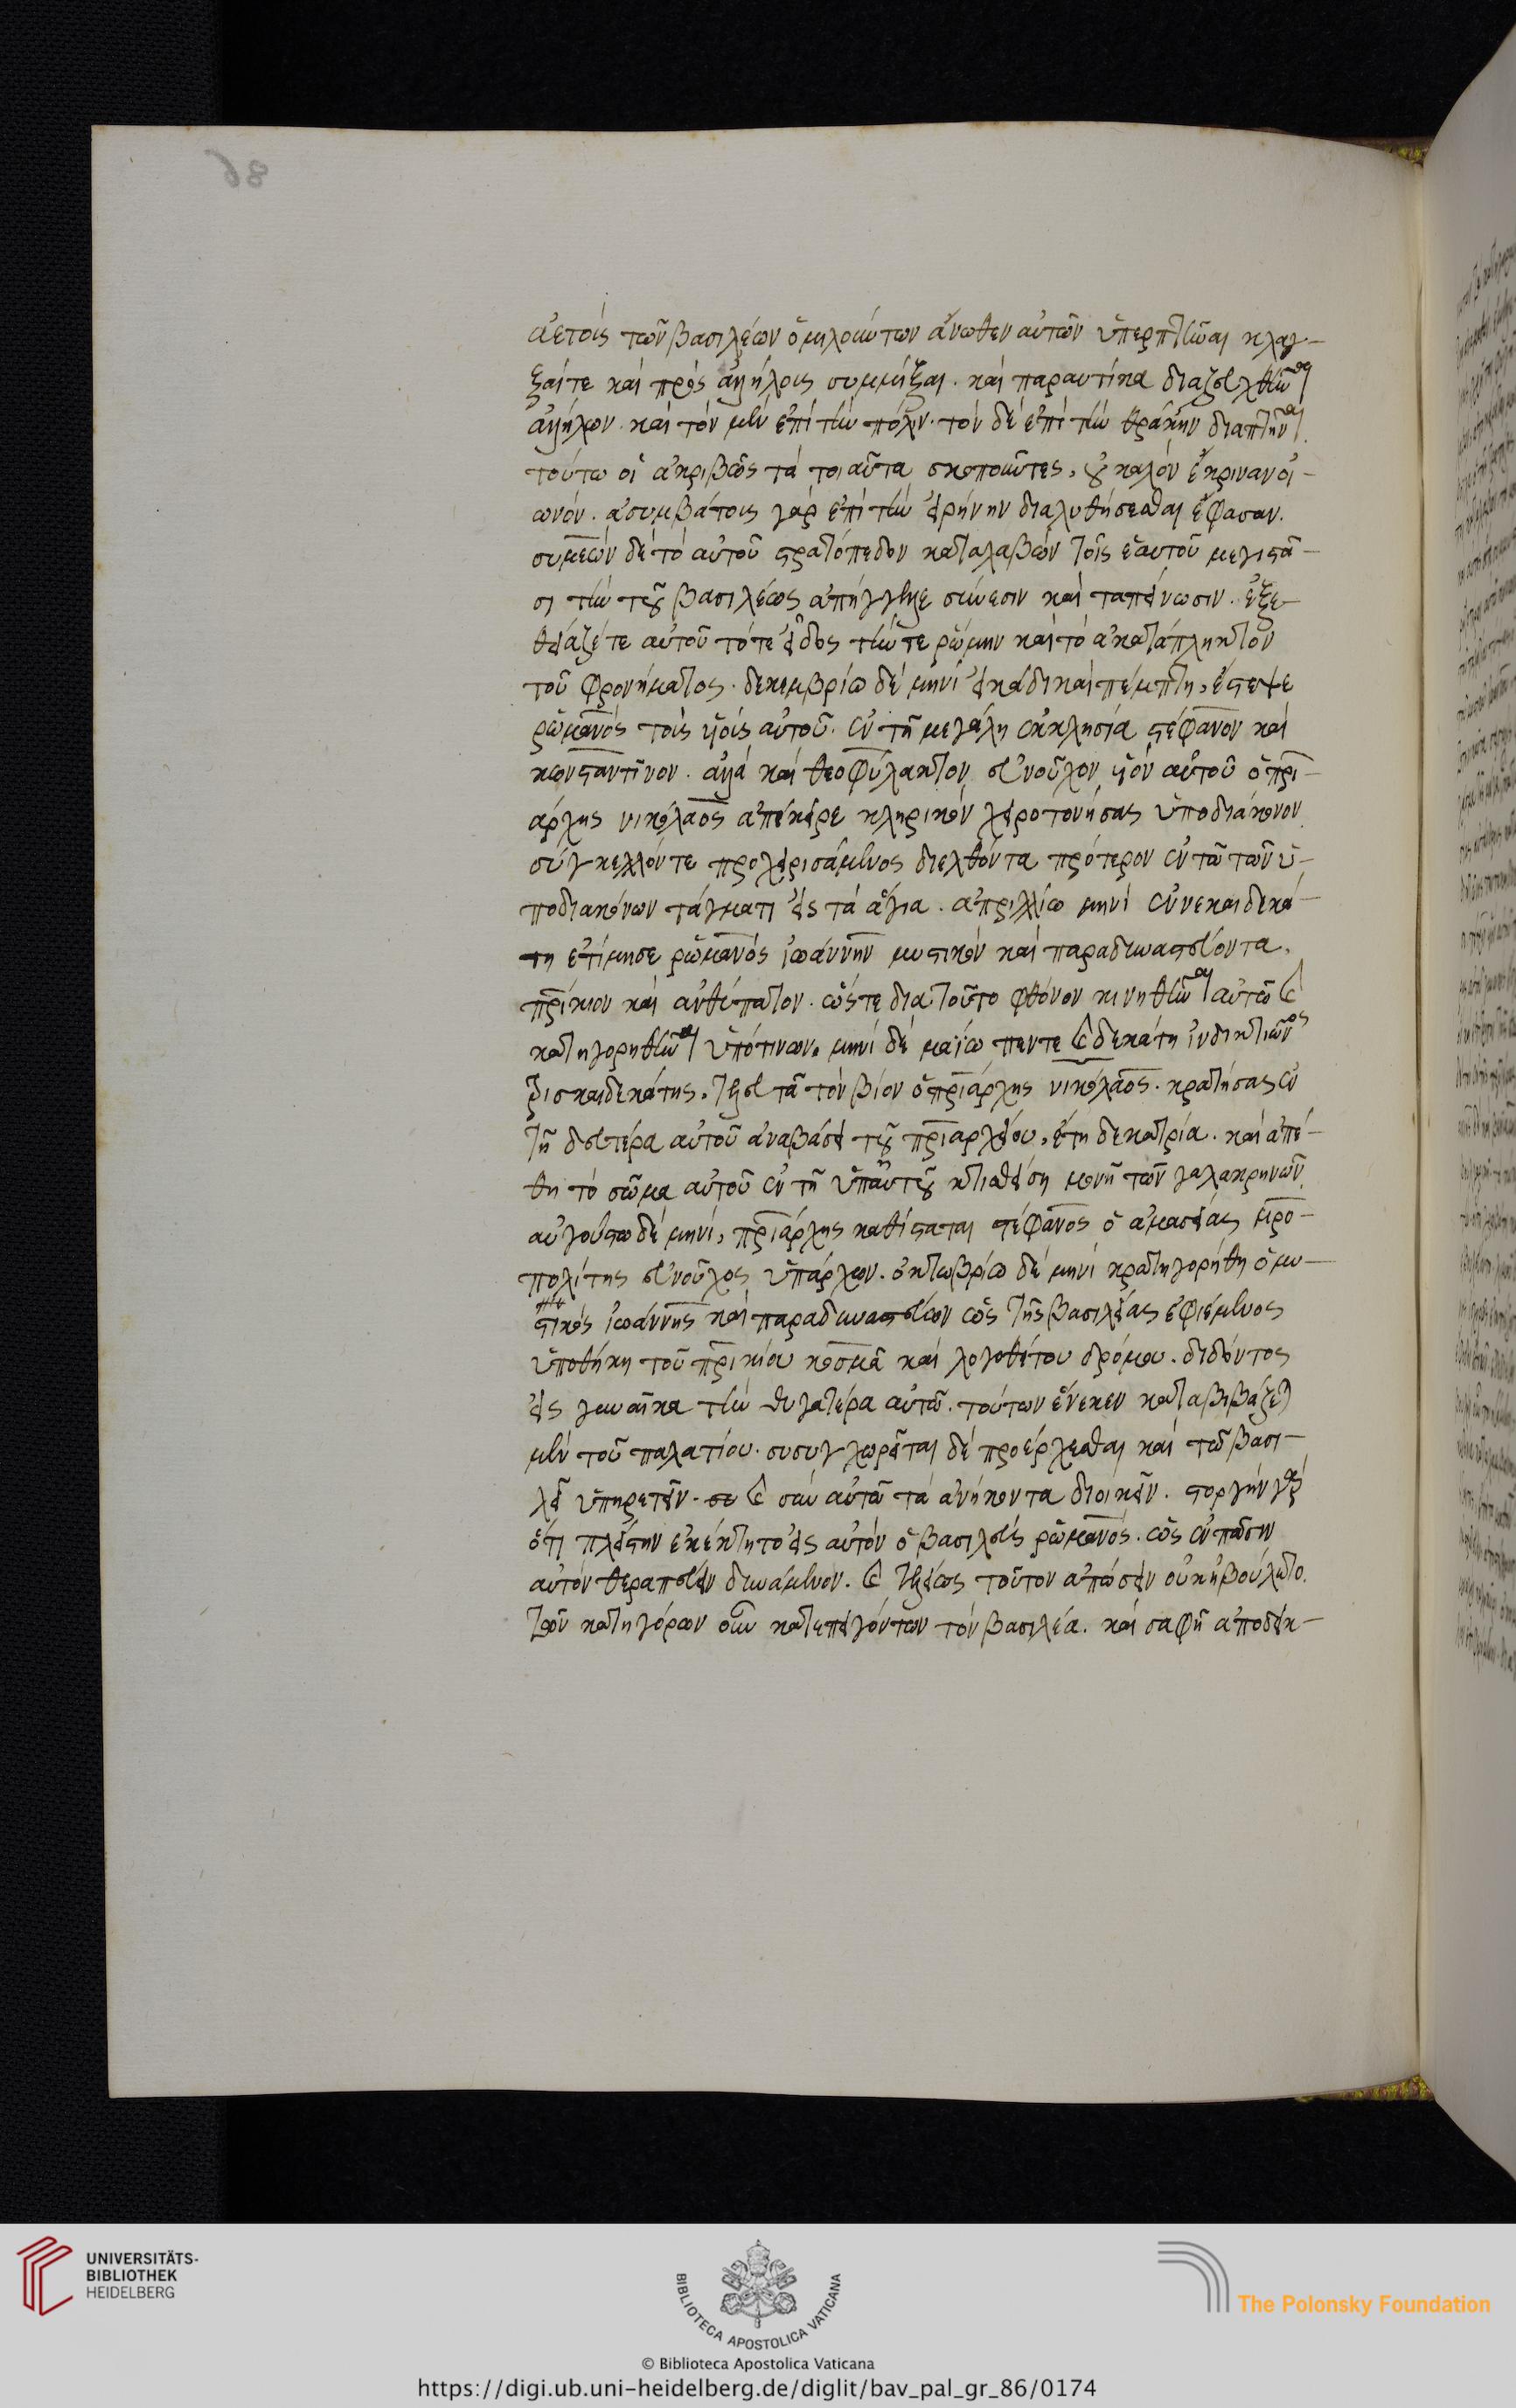 ἀετοὺς τῶν βασιλέων ὁμιλούντων ἄνωθεν αὐτῶν ὑπερπτῆναι κλαγ-
ξαί τε καὶ πρὸς ἀλλήλους συμμίξαι. καὶ παραυτίκα διαζευχθῆναι
ἀλλήλων. καὶ τὸν μὲν ἐπὶ τὴν πόλιν. τὸν δὲ ἐπὶ τὴν θράκην διαπτῆναι.
τούτω οἱ ἀκριβῶς τὰ τοιαῦτα σκοποῦντες, οὐ καλὸν ἔκριναν οἰ-
ωνόν. ἀσυμβάτοις γὰρ ἐπὶ τὴν εἰρήνην διαλυθήσεσθαι ἔφασαν.
συμεὼν δὲ τὸ αὐτοῦ στρατόπεδον καταλαβὼν τοῖς ἑαυτοῦ μεγιστᾶ-
σι τὴν τοῦ βασιλέως ἀπήγγειλε σύνεσιν καὶ ταπείνωσιν. ἐξε-
θείαζέ τε αὐτοῦ τό τε εἶδος τήν τε ρώμην καὶ τὸ ἀκατάπληκτον
τοῦ φρονήματος. δεκεμβρίω δὲ μηνὶ εἰκάδι καὶ πέμπτη, ἔστεψε
ρωμανὸς τοὺς υἱοὺς αὐτοῦ. ἐν τῆ μεγάλη ἐκκλησία στέφανον καὶ
κωνσταντῖνον. ἀλλὰ καὶ θεοφύλακτον εὐνοῦχον υἱὸν αὐτοῦ ὁ πρι-
άρχης νικόλαος ἀπέκειρε κληρικὸν χειροτονήσας ὑποδιάκονον
σύγκελλόν τε προχειρισάμενος διελθόντα πρότερον ἐν τῶ τῶν ὑ-
ποδιακόνων τάγματι εἰς τὰ ἅγια. ἀπριλλίω μηνὶ ἐννεακαιδεκά-
τη ἐτίμησε ρωμανὸς ἰωάννην μυστικὸν καὶ παραδυναστεύοντα.
πρίκιον καὶ ἀνθύπατον. ὥστε διὰ τοῦτο φθόνον κινηθῆναι αὐτῶ καὶ
κατηγορηθῆναι ὑπό τινων. μηνὶ δὲ μαΐω πεντεκαιδεκάτη ἰνδικτιῶνος
τρισκαιδεκάτης, τελευτᾶ τὸν βίον ὁ πριάρχης νικόλαος. κρατήσας ἐν
τῆ δευτέρα αὐτοῦ ἀναβάσει τοῦ πριαρχείου, ἔτη δεκατρία. καὶ ἀπέ-
θη τὸ σῶμα αὐτοῦ ἐν τῆ ὑπ' αὐτοῦ κτισθείση μονῆ τῶν γαλακρηνῶν.
αὐγούστω δὲ μηνὶ, πριάρχης καθίσταται στέφανος ὁ ἀμασείας μρο-
πολίτης εὐνοῦχος ὑπάρχων. ὀκτωβρίω δὲ μηνὶ κρατηγορήθη ὁ μυ-
στικὸς ἰωάννης καὶ παραδυναστεύων ὡς τῆς βασιλείας ἐφιέμενος
ὑποθήκη τοῦ πρικίου κοσμᾶ καὶ λογοθέτου δρόμου. διδόντος
εἰς γυναῖκα τὴν θυγατέρα αὐτῶ. τούτων ἕνεκεν καταβιβάζεται
μὲν τοῦ παλατίου. συσυγχωρεῖται δὲ προέρχεσθαι καὶ τῶ βασι-
λεῖ ὑπηρετεῖν. καὶ σὺν αὐτῶ τὰ ἀνήκοντα διοικεῖν. στοργὴν γὰρ
ὅτι πλείστην ἐκέκτητο εἰς αὐτὸν ὁ βασιλεὺς ρωμανός. ὡς ἐν πᾶσιν
αὐτὸν θεραπεύειν δυνάμενον. καὶ τελείως τοῦτον ἀπώσειν οὐκ ἠβούλετο.
τῶν κατηγόρων οὖν κατεπειγόντων τὸν βασιλέα. καὶ σαφῆ ἀποδεικ-
UNIVERSITÄTS-
BIBLIOTHEK
HEIDELBERG
BIBLIOTECA APOSTOLICA VATICANA
The Polonsky Foundation
© Biblioteca Apostolica Vaticana
https://digi.ub.uni-heidelberg.de/diglit/bav_pal_gr_86/0174